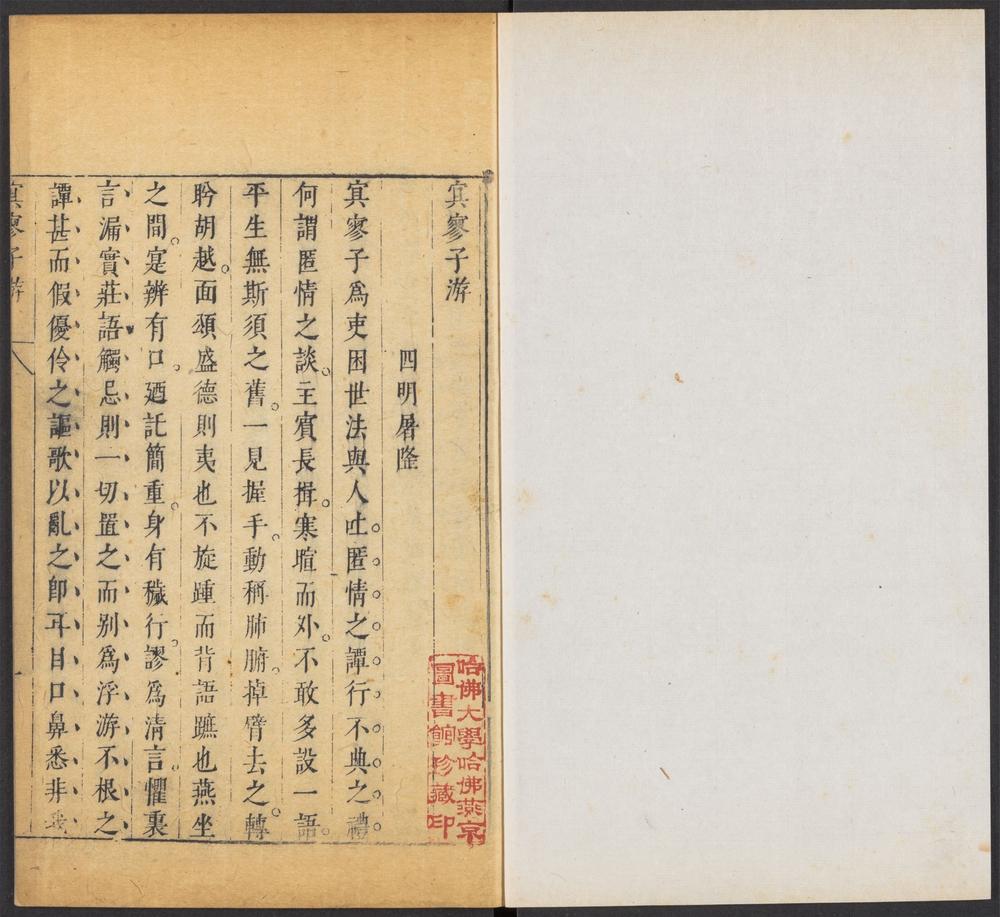 寘寥子游
四明屠隆
寘寥子爲吏困世法與人吐匿情之譚行不典之禮
何謂匿情之談主賓長揖寒暄而外不敢多設一語
平生無斯須之舊一見握手動稱肺腑掉臂去之轉
盻胡越面頌盛德則夷也不旋踵而背語蹠也燕坐
之間寔辨有口廼託簡重身有穢行謬爲清言懼裏
言漏實莊語觸忌則一切置之而别爲浮游不根之
譚甚而假優伶之謳歌以亂之卽耳目口鼻悉非我
寘寥子游
一
哈佛大學哈佛燕京
圖書館珍藏印